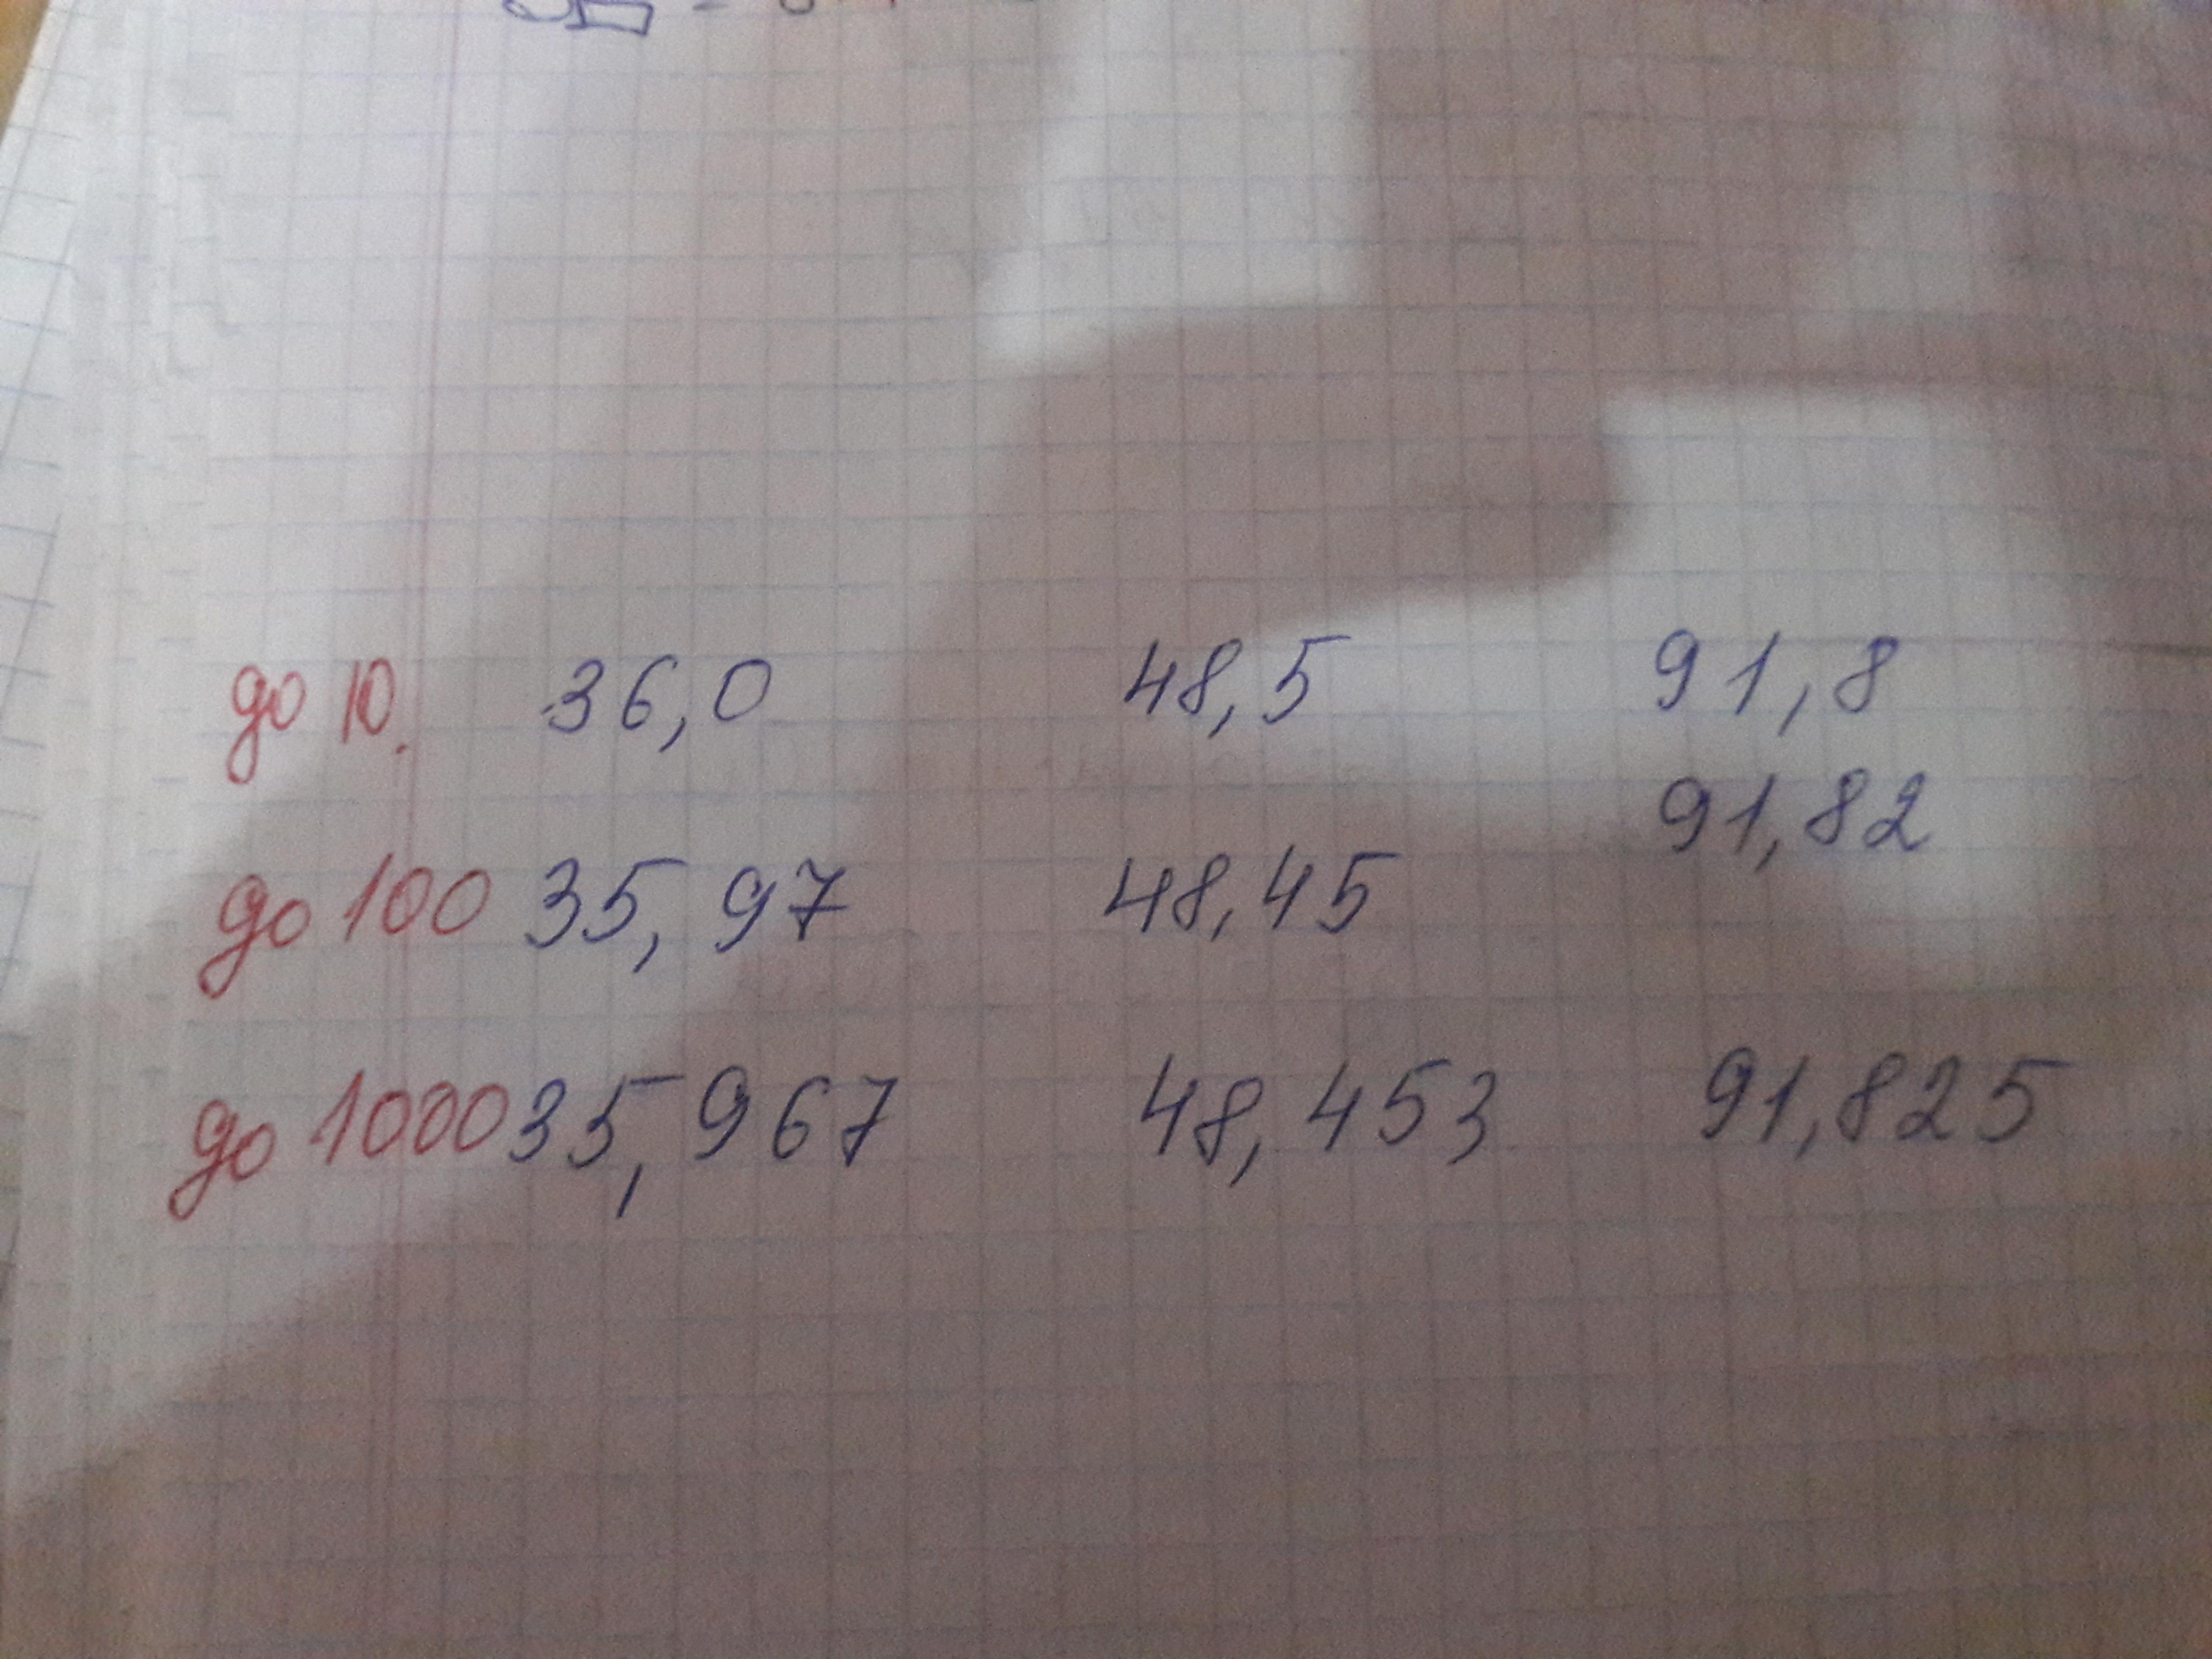 до 10. 36,0 48,5 91,8
91,82
до 100 35,97 48,45
до 1000 35,967 48,453 91,825